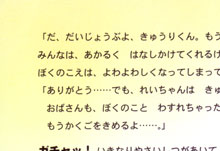 「だ、だいじょうぶよ、きゅうりくん。も
みんなは、あかるく　はなしかけてくれるけ
ぼくのこえは、よわよわしくなってしまって
「ありがとう……でも、れいちゃんは　き
おばさんも、ぼくのこと　わすれちゃった
もうかくごをきめるよ……。」
ガチャッ！　いきなりやさいしつがあいて